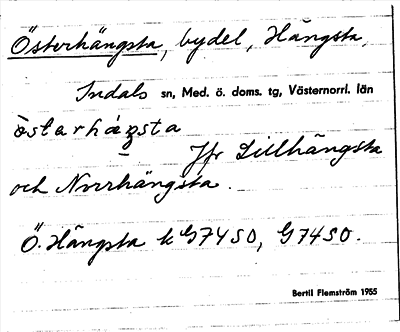 Österhängsta, bydel, Hängsta,
Indals sn, Med. ö. doms. tg, Västernorrl. län
östarháŋsta
Jfr Lillhängsta
och Norrhängsta.
Ö. Hängsta k G7450, G7450.
Bertil Flemström 1955